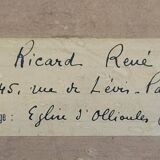 Ricard René
45, rue de Lévis - Pa
ge : Eglise d'Ollioules (